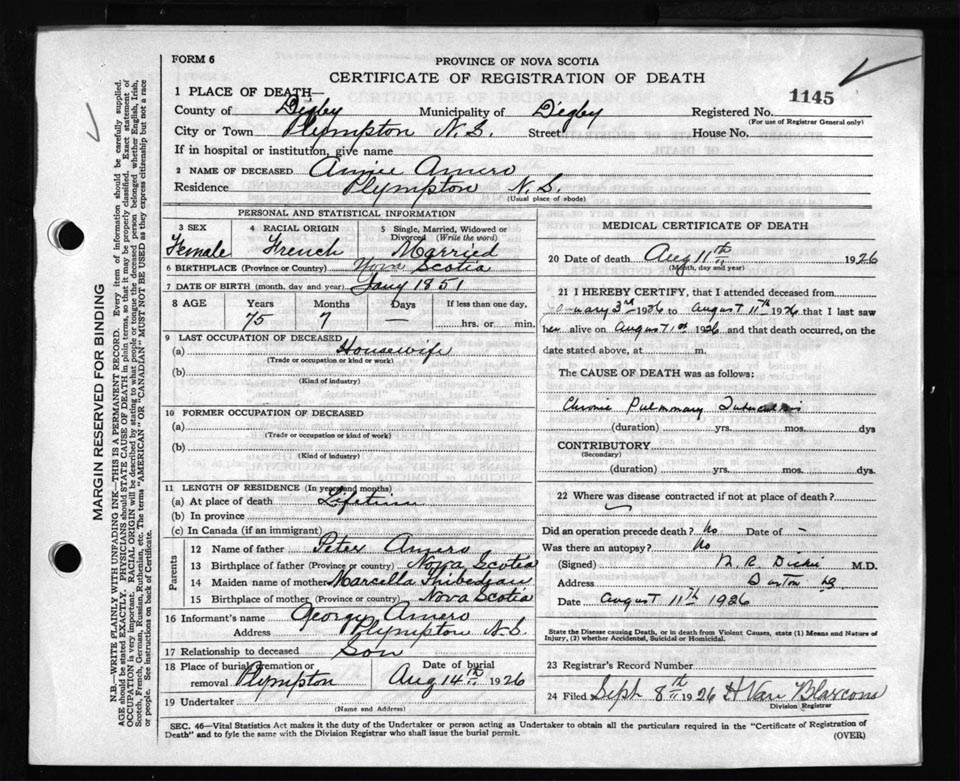 FORM 6
PROVINCE OF NOVA SCOTIA
CERTIFICATE OF REGISTRATION OF DEATH
1 PLACE OF DEATH—
County of Digby Municipality of Digby Registered No. 1145
(For use of Registrar General only)
City or Town Plympton N.S. Street House No.
If in hospital or institution, give name
2 NAME OF DECEASED Annie Amero
Residence Plympton N.S.
(Usual place of abode)
PERSONAL AND STATISTICAL INFORMATION
3 SEX Female
4 RACIAL ORIGIN French
5 Single, Married, Widowed or Divorced (Write the word) Married
6 BIRTHPLACE (Province or Country) Nova Scotia
7 DATE OF BIRTH (month, day and year) Jany 1851
8 AGE Years Months Days If less than one day,
75 7 — hrs. or min.
9 LAST OCCUPATION OF DECEASED
(a) Housewife
(Trade or occupation or kind of work)
(b)
(Kind of industry)
10 FORMER OCCUPATION OF DECEASED
(a)
(Trade or occupation or kind of work)
(b)
(Kind of industry)
11 LENGTH OF RESIDENCE (In years and months)
(a) At place of death Lifetime
(b) In province
(c) In Canada (if an immigrant)
Parents
12 Name of father Peter Amero
13 Birthplace of father (Province or Country) Nova Scotia
14 Maiden name of mother Marcella Thibedeau
15 Birthplace of mother (Province or country) Nova Scotia
16 Informant's name George Amero
Address Plympton N.S.
17 Relationship to deceased Son
18 Place of burial, cremation or removal Plympton Date of burial Aug 14th 1926
19 Undertaker
(Name and Address)
MEDICAL CERTIFICATE OF DEATH
20 Date of death Aug 11th 1926
(Month, day and year)
21 I HEREBY CERTIFY, that I attended deceased from
3rd 1926 to August 11th 1926 that I last saw
her alive on August 1st 1926 and that death occurred, on the
date stated above, at m.
The CAUSE OF DEATH was as follows:
Chronic Pulmonary
(duration) yrs. mos. dys
CONTRIBUTORY
(Secondary)
(duration) yrs. mos. dys
22 Where was disease contracted if not at place of death?
Did an operation precede death? No Date of —
Was there an autopsy? No
(Signed) M.D.
Address
Date August 11th 1926
State the Disease causing Death, or in death from Violent Causes, state (1) Means and Nature of
Injury, (2) whether Accidental, Suicidal or Homicidal.
23 Registrar's Record Number
24 Filed Sept 8th 1926 H Van Blarcom
Division Registrar
SEC. 46—Vital Statistics Act makes it the duty of the Undertaker or person acting as Undertaker to obtain all the particulars required in the "Certificate of Registration of
Death" and to fyle the same with the Division Registrar who shall issue the burial permit.
(OVER)
MARGIN RESERVED FOR BINDING
N.B.—WRITE PLAINLY WITH UNFADING INK—THIS IS A PERMANENT RECORD. Every item of information should be carefully supplied.
AGE should be stated EXACTLY. PHYSICIANS should STATE CAUSE OF DEATH in plain terms, so that it may be properly classified. Exact statement of
OCCUPATION is very important. RACIAL ORIGIN will be described by stating to what people or tongue the deceased person belonged whether English, Irish,
Scotch, French, German, Russian, Ruthenian, etc. The terms "AMERICAN" OR "CANADIAN" MUST NOT BE USED as they express citizenship but not a race
or people. See instructions on back of Certificate.